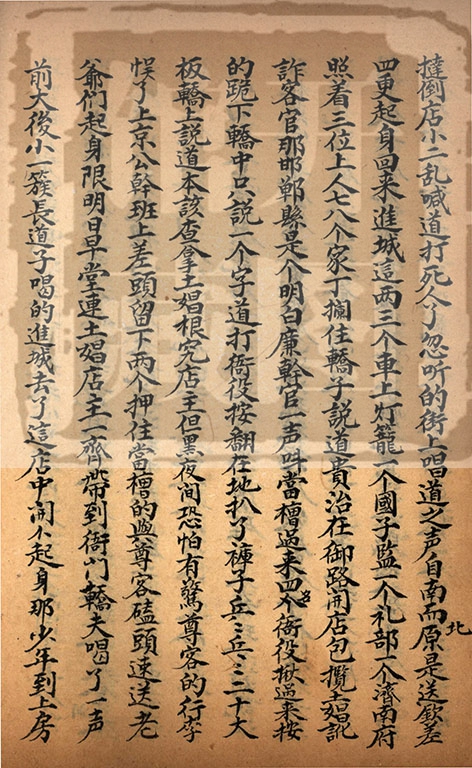 撻倒店小二乱喊道打死人了忽听的街上唱道之声自南而北原是送欽差
四更起身回来進城這两三个車上灯籠一个國子監一个礼部一个濟南府
照着三位上人七八个家丁攔住轎子説道貴治在御路開店包攬土娼訛
詐客官那邯鄲縣是个明白廉幹官一声呌當槽過来四五个衙役揪過来按
的跪下轎中只説一个字道打衙役按翻在地扒了褲子乒乒乓乓三十大
板轎上説道本該店拿土娼根究店主但黑夜间恐怕有驚尊客的行李
悞了上京公幹班上差頭留下两个押住當槽的與尊客磕頭速送老
爺们起身限明日早堂連土娼店主一齊帶到衙门轎夫喝了一声
前大後小一簇長道子喝的進城去了這店中闹个起身那少年到上房